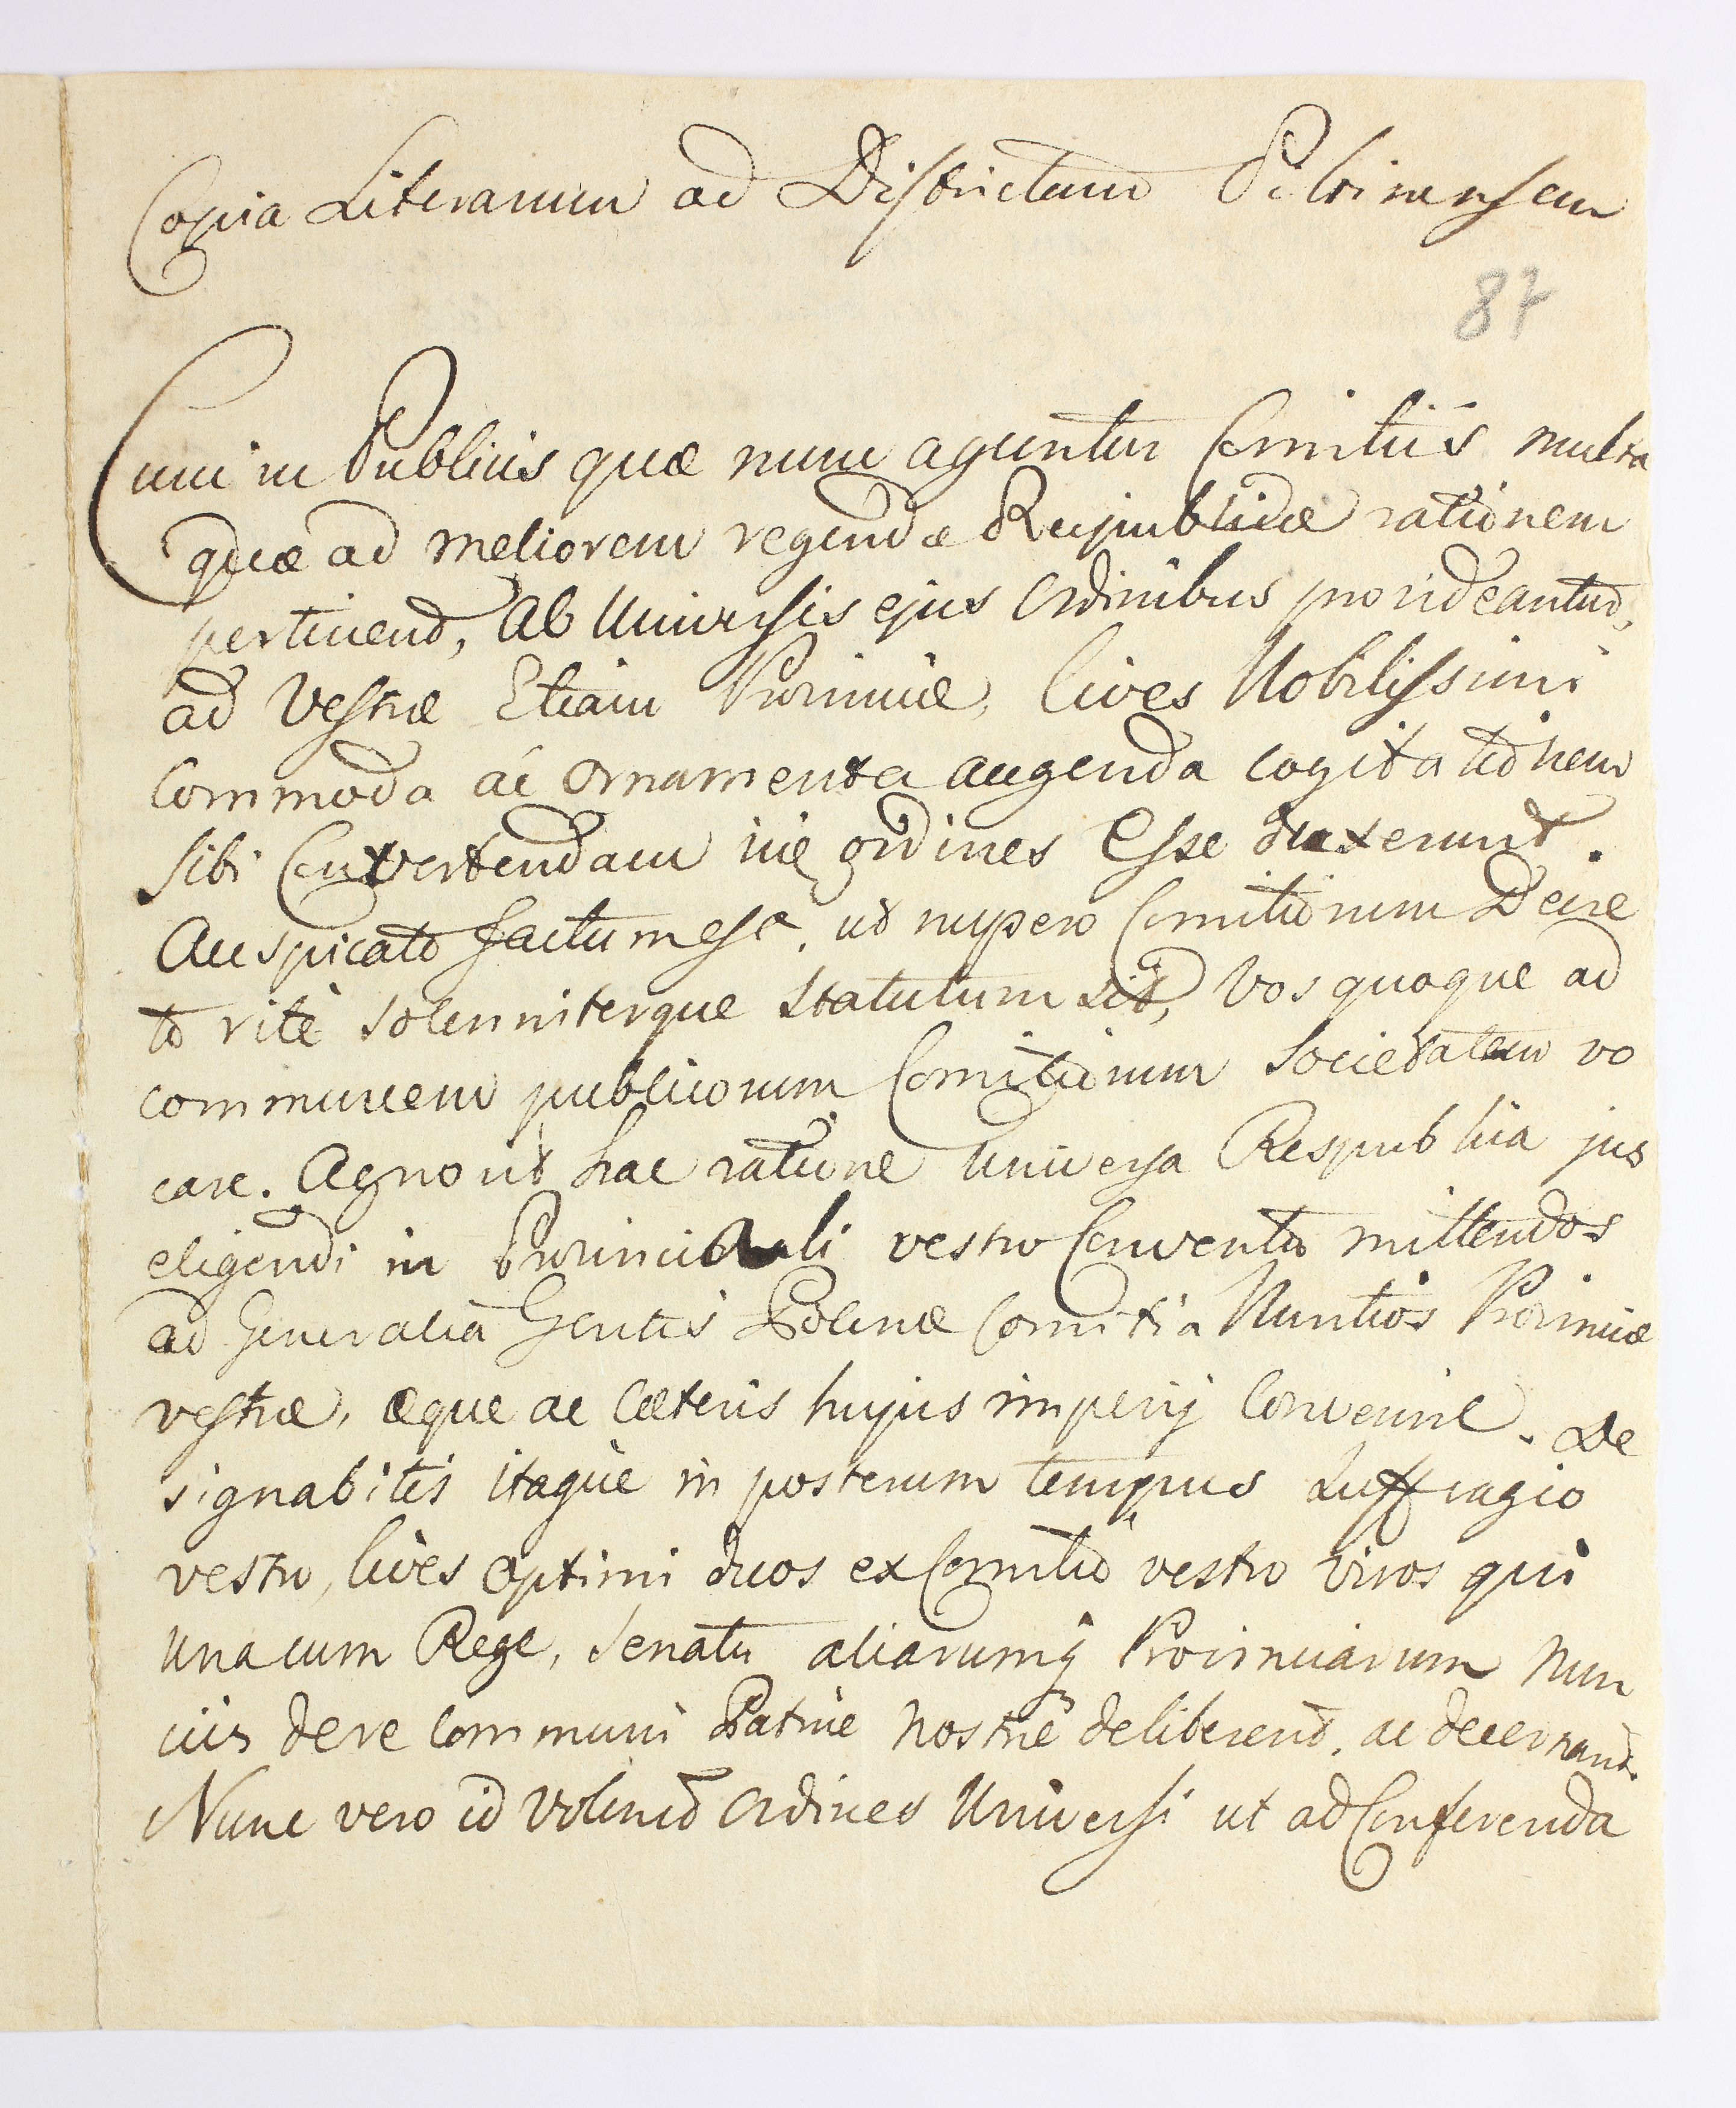 Copia Literarum ad Districtum Piltinensem
87
Cum in Publicis quæ nunc aguntur Comitiis multa
quæ ad meliorem regendæ Reipublicæ rationem
pertinent, ab Universis ejus Ordinibus provideantur,
ad Vestræ Etiam Provinciæ, Cives Nobilissimi
Commoda ac ornamenta augenda cogitationem
sibi Convertendam iie ordines Esse duxerunt.
Auspicato factum est, ut nupero Comitiorum Decre
to ritè solenniterque statutum sit, Vos quoque ad
communem publicorum Comitiorum Societatem vo
care. Agnovit hac ratione Universa Respublica jus
eligendi in Provinciali vestro Conventu mittendos
ad Generalia Gentis Polonæ Comitia Nuntios Provinciæ
vestræ, æque ac Cæteris hujus imperij Convenire. De
signabitis itaque in posterum tempus Suffragio
vestro, Cives Optimi duos ex Comitio vestro viros qui
una cum Rege, Senatu aliarumq Provinciarum Nun
ciis de re Communi Patriæ nostræ deliberent, ac decernant.
Nunc vero id Volunt Ordines Universi ut ad Conferenda